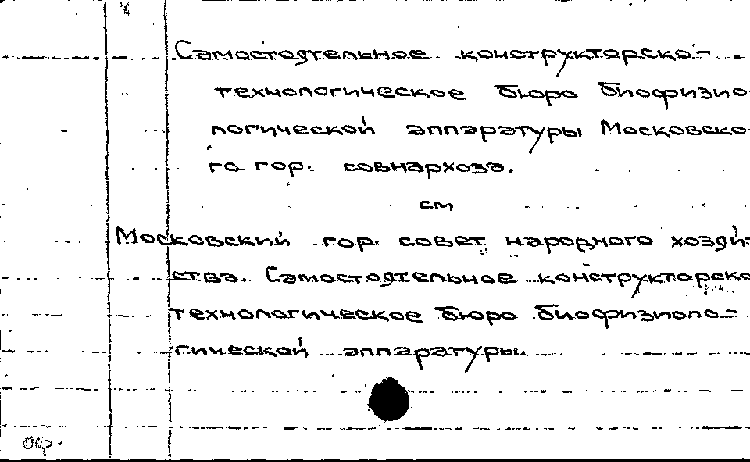 Самостоятельное конструкторско-
технологическое бюро биофизио-
логической аппаратуры Московско-
го гор. совнархоза.
см
Московский гор. совет народного хозяй-
ства. Самостоятельное конструкторско
технологическое бюро биофизиоло-
гической аппаратуры.